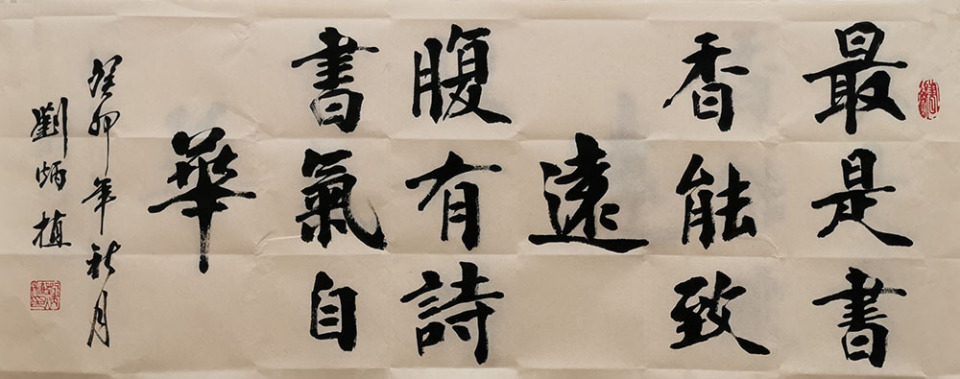 最是書
香能致
遠
腹有詩
書氣自
華
癸卯年秋月
劉炳植